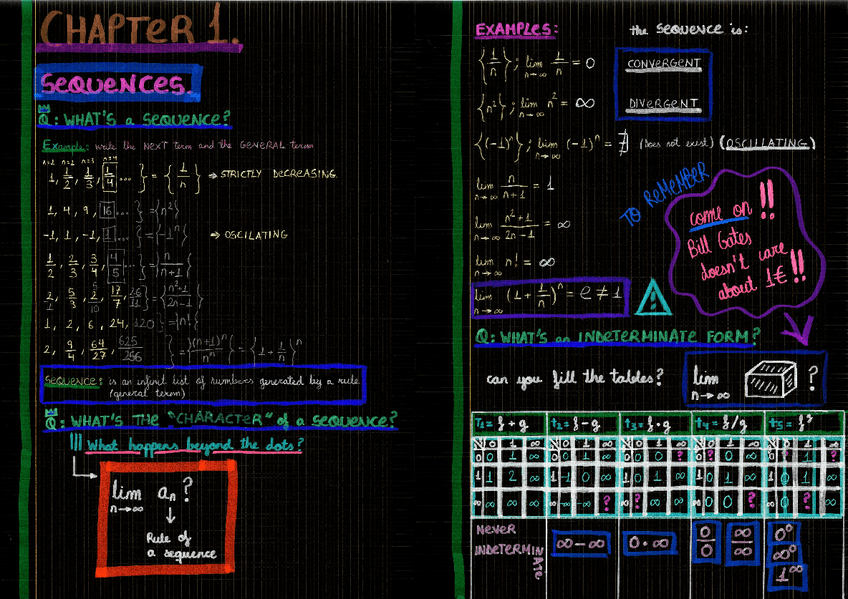 CHAPTER 1.
SEQUENCES.
Q: WHAT'S a SEQUENCE?
Example: write the NEXT term and the GENERAL term
n=1 n=2 n=3 n=4
1, 1/2, 1/3, 1/4 ... } = {1/n} → STRICTLY DECREASING.
1, 4, 9, 16 ... } = {n²}
-1, 1, -1, 1 ... } = {-1ⁿ} → OSCILATING
1/2, 2/3, 3/4, 4/5 ... } = {n/n+1}
2/1, 5/3, 2, 10/5, 17/7, 26/11 } = {n²-1/2n-1}
1, 2, 6, 24, 120 } = {n!}
2, 9/4, 64/27, 625/256 } = {(n+1)ⁿ/nⁿ} = {1 + 1/n}ⁿ
SEQUENCE: is an infinit list of numbers generated by a rule
(general term)
Q: WHAT'S THE "CHARACTER" of a SEQUENCE?
What happens beyond the dots?
lim n→∞ aₙ ?
Rule of
a sequence
EXAMPLES: the SEQUENCE is:
{1/n} ; lim n→∞ 1/n = 0 CONVERGENT
{n²} ; lim n→∞ n² = ∞ DIVERGENT
{(-1)ⁿ} ; lim n→∞ (-1)ⁿ = ∄ (Does not exist) (OSCILLATING)
lim n→∞ n/n+1 = 1
lim n→∞ n²+1/2n-1 = ∞
lim n→∞ n! = ∞
lim n→∞ (1 + 1/n)ⁿ = e ≠ 1
TO REMEMBER
come on !!
Bill Gates
doesn't care
about 1€!!
Q: WHAT'S an INDETERMINATE FORM?
can you fill the tables? lim n→∞ ?
t₁= f+g t₂= f-g t₃= f·g t₄= f/g t₅= fᵍ
0 1 ∞ 0 1 ∞ 0 1 ∞ 0 1 ∞ 0 1 ∞
NEVER
INDETERMINATE
∞-∞ 0·∞ 0/0 ∞/∞ 0⁰
∞⁰
1^∞